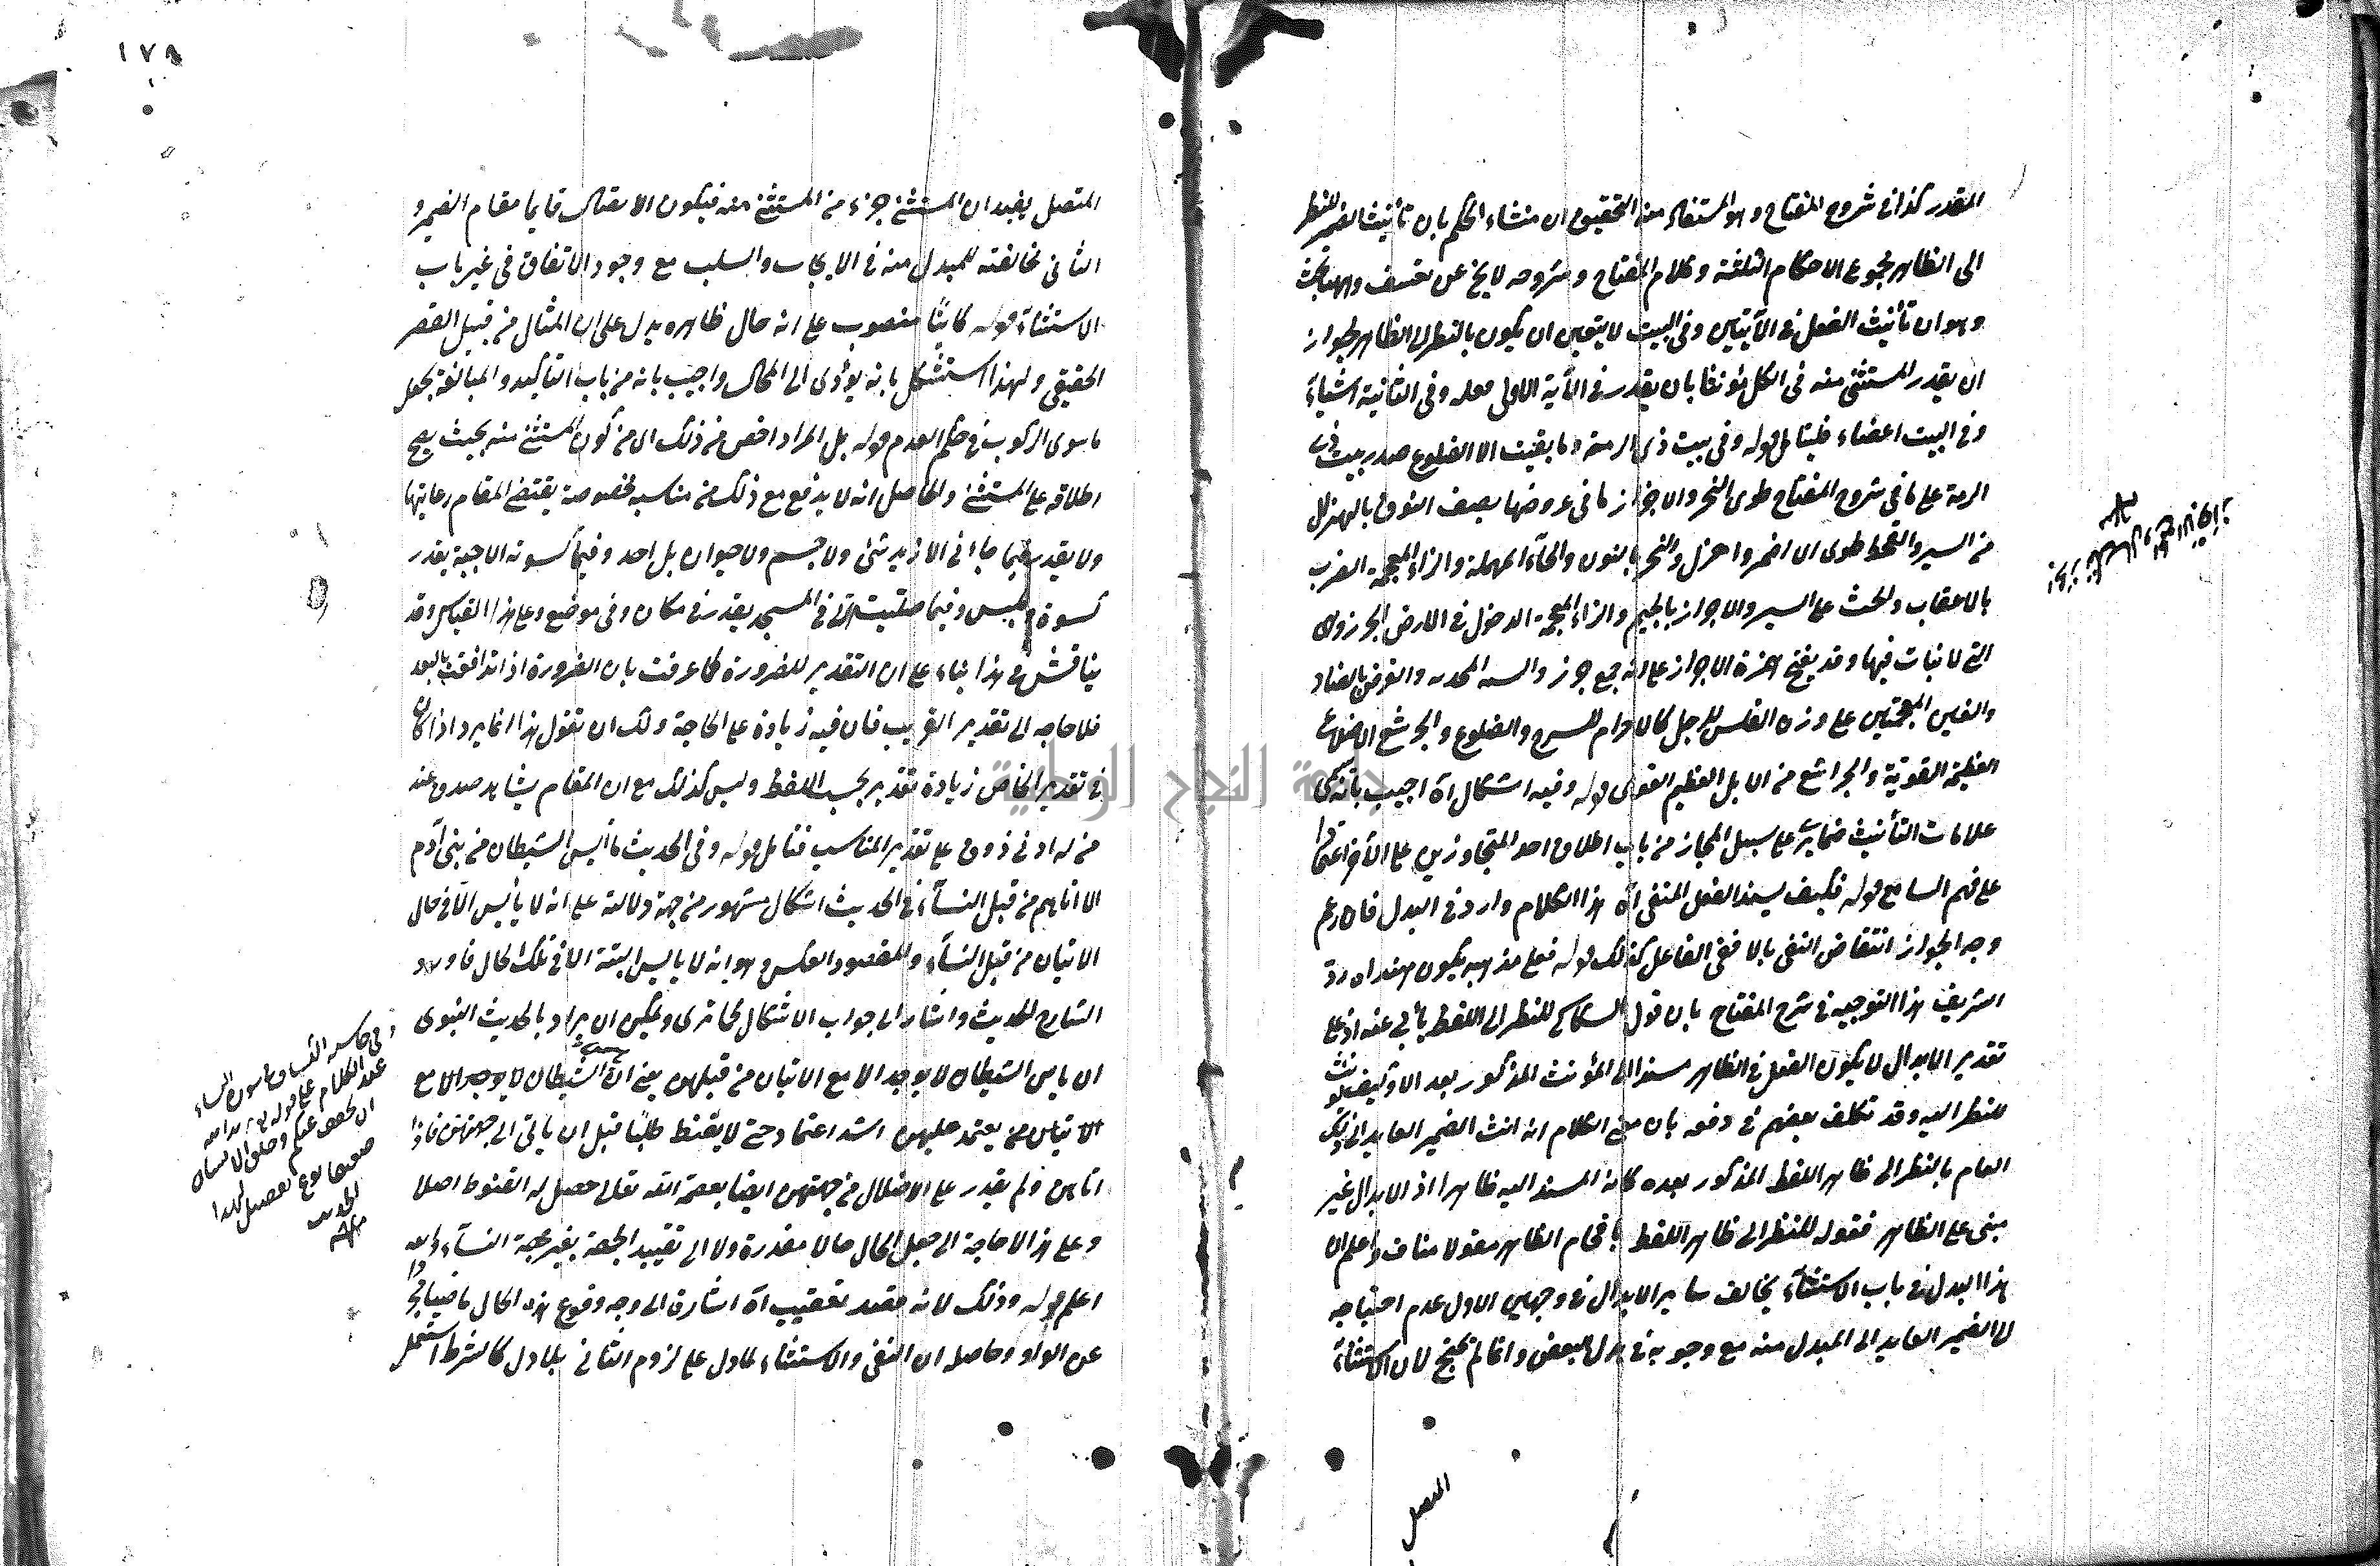 المقدر كذا في شروح المفتاح وهو المستفاد منه التحقيق ان منشاء الحكم بان تأنيث الضمير للنظر
الى الظاهر مجموع الاحكام الثلثة وكلام المفتاح وشروحه لا يخ عن تعسف وههنا بحث
وهو ان تأنيث الفعل في الآيتين وفي البيت لا يتعين ان يكون بالنظر الى الظاهر لجواز
ان يقدر المستثنى منه في الكل مؤنثا بان يقدر في الآية الاولى وفي الثانية اشياء
وفي البيت اعضاء فليتأمل قوله وفي بيت ذي الرمة وما بقيت الا الضلوع صدر بيت ذي
الرمة على ما في شروح المفتاح طوى النحز والاجراز ما في غروضها يصف النوق بالهزال
من السير والقحط طوى اى اضمر واهزل والنحز بالنون والحاء المهملة والزاء المعجمة الضرب
بالاعقاب والحث على السير والاجراز بالجيم والزاء المعجمة الدخول في الارض الجرز وهى
التى لا نبات فيها وقد يفتح همزة الاجراز على انه جمع جرز والغرض بالضاد
والغين المعجمتين على وزن الفلس للرجل كالحزام للسرج والضلوع والجرشع الاضلاع
العظيمة القوية والجراشع من الابل العظيم القوى قوله وفيه اشكال آه اجيب بانه سمى
علامات التأنيث ضماير على سبيل المجاز من باب اطلاق احد المتجاورين على الآخر اعتمادا
على فهم السامع قوله فكيف يسند الفعل المنفى آه هذا الكلام وارد في البدل فان زعم
وجه الجواز انتقاض النفى بالا ففى الفاعل كذلك قوله فعلى مذهبه يكون هند ان ردة
الشريف هذا التوجيه في شرح المفتاح بان قول السكاكى للنظر الى اللفظ يأبى عنه اذ على
تقدير الابدال لا يكون الفعل في الظاهر مسندا الى المؤنث المذكور بعد الا وكيف يؤنث
للنظر اليه وقد تكلف بعضهم في دفعه بان معنى الكلام انه انث الضمير العايد الى ذلك
العام بالنظر الى ظاهر اللفظ المذكور بعده كانه المسند اليه ظاهرا اذ الابدال غير
مبنى على الظاهر فقوله للنظر الى ظاهر اللفظ باقحام الظاهر مناف واعلم ان
هذا البدل في باب الاستثناء يخالف ساير الابدال في وجهين الاول عدم احتياجه
الى الضمير العايد الى المبدل منه مع وجوبه في بدل البعض وانما لم يحتج لان الاستثناء
المتصل
المتصل يفيد ان المستثنى جزء من المستثنى منه فيكون الاتصال قايما مقام الضمير و
الثانى مخالفته للمبدل منه في الايجاب والسلب مع وجود الاتفاق في غير باب
الاستثناء قوله كاينا منصوب على انه حال ظاهره يدل على ان المثال من قبيل القصر
الحقيقى ولهذا استشكل بانه يؤدى الى المحال واجيب بانه من باب التأكيد والمبالغة بجعل
ما سوى الركوب في حكم العدم قوله بل المراد اخص من ذلك اى من كون المستثنى منه بحيث يصح
اطلاقه على المستثنى والحاصل انه لا يدفع مع ذلك من مناسبه بخصوصة يقتضى المقام رعايتها
ولا يقدر فيما جاءنى الا زيد شئ ولا جسم ولا حيوان بل احد وفيما كسوته الا جبة يقدر
كسوة ولبس وفيما صليت الا في المسجد يقدر في مكان وفي موضع وعلى هذا القياس وقد
يناقش في هذا بناء على ان التقدير للضرورة كما عرفت بان الضرورة اذا اندفعت بالبعد
فلا حاجة الى تقدير القريب فان فيه زيادة على الحاجة ولك ان تقول هذا انما يرد اذا كان
في تقدير الخاص زيادة تقدير بحسب اللفظ وليس كذلك مع ان المقام يشاهد صدق عند
من له ادنى ذوق على تقدير المناسب فتأمل قوله وفي الحديث ما أيس الشيطان من بنى آدم
الا اتاهم من قبل النساء في الحديث اشكال مشهور من جهة دلالته على انه لا يأيس الا في حال
الاتيان من قبل النساء والمقصود العكس وهو انه لا يايس البتة الا في تلك الحال فاورد
الشارح الحديث واشار الى جواب الاشكال كما ترى ويمكن ان يراد بالحديث النبوى
ان يايس الشيطان لا يوجد الا مع الاتيان من قبلهن يعنى ان الشيطان لا يوجد الا مع
الاتيان ممن يعتمد عليهن اشد اعتماد حتى لا يقنط طالبا قبل ان ياتى الى جهتهن فاذا
اتاهن ولم يقدر على الاضلال من جهتهن ايضا بعصمة الله تعالى حصل له القنوط اصلا
وعلى هذا لا حاجة الى جعل الحال حالا مقدرة ولا الى تقييد الجهة بغير جهة النساء والله
اعلم قوله وذلك لانه مقصد تعقيب آه اشارة الى وجه وقوع هذه الحال ماضيا مجردا
عن الواو وحاصله ان النفى والاستثناء لما دل على لزوم الثانى بلما دل كالشرط استعمل
عند الكلام على قوله
وخلق الانسان
١٧٨
جامعة النجاح الوطنية